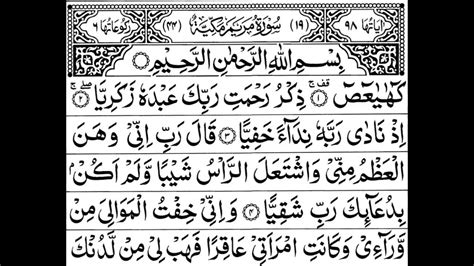 اٰيَاتُهَا ٩٨ (١٩) سُوْرَةُ مَرْيَمَ مَكِّيَّةٌ (٤٤) رُكُوْعَاتُهَا ٦
بِسْمِ اللّٰهِ الرَّحْمٰنِ الرَّحِيْمِ
كٓهٰيٰعٓصٓ ۚ ١ ذِكْرُ رَحْمَتِ رَبِّكَ عَبْدَهٗ زَكَرِيَّا ۖ ٢
اِذْ نَادٰى رَبَّهٗ نِدَآءً خَفِيًّا ٣ قَالَ رَبِّ اِنِّيْ وَهَنَ
الْعَظْمُ مِنِّيْ وَاشْتَعَلَ الرَّاْسُ شَيْبًا وَّلَمْ اَكُنْۢ
بِدُعَآئِكَ رَبِّ شَقِيًّا ٤ وَاِنِّيْ خِفْتُ الْمَوَالِيَ مِنْ
وَّرَآءِيْ وَكَانَتِ امْرَاَتِيْ عَاقِرًا فَهَبْ لِيْ مِنْ لَّدُنْكَ